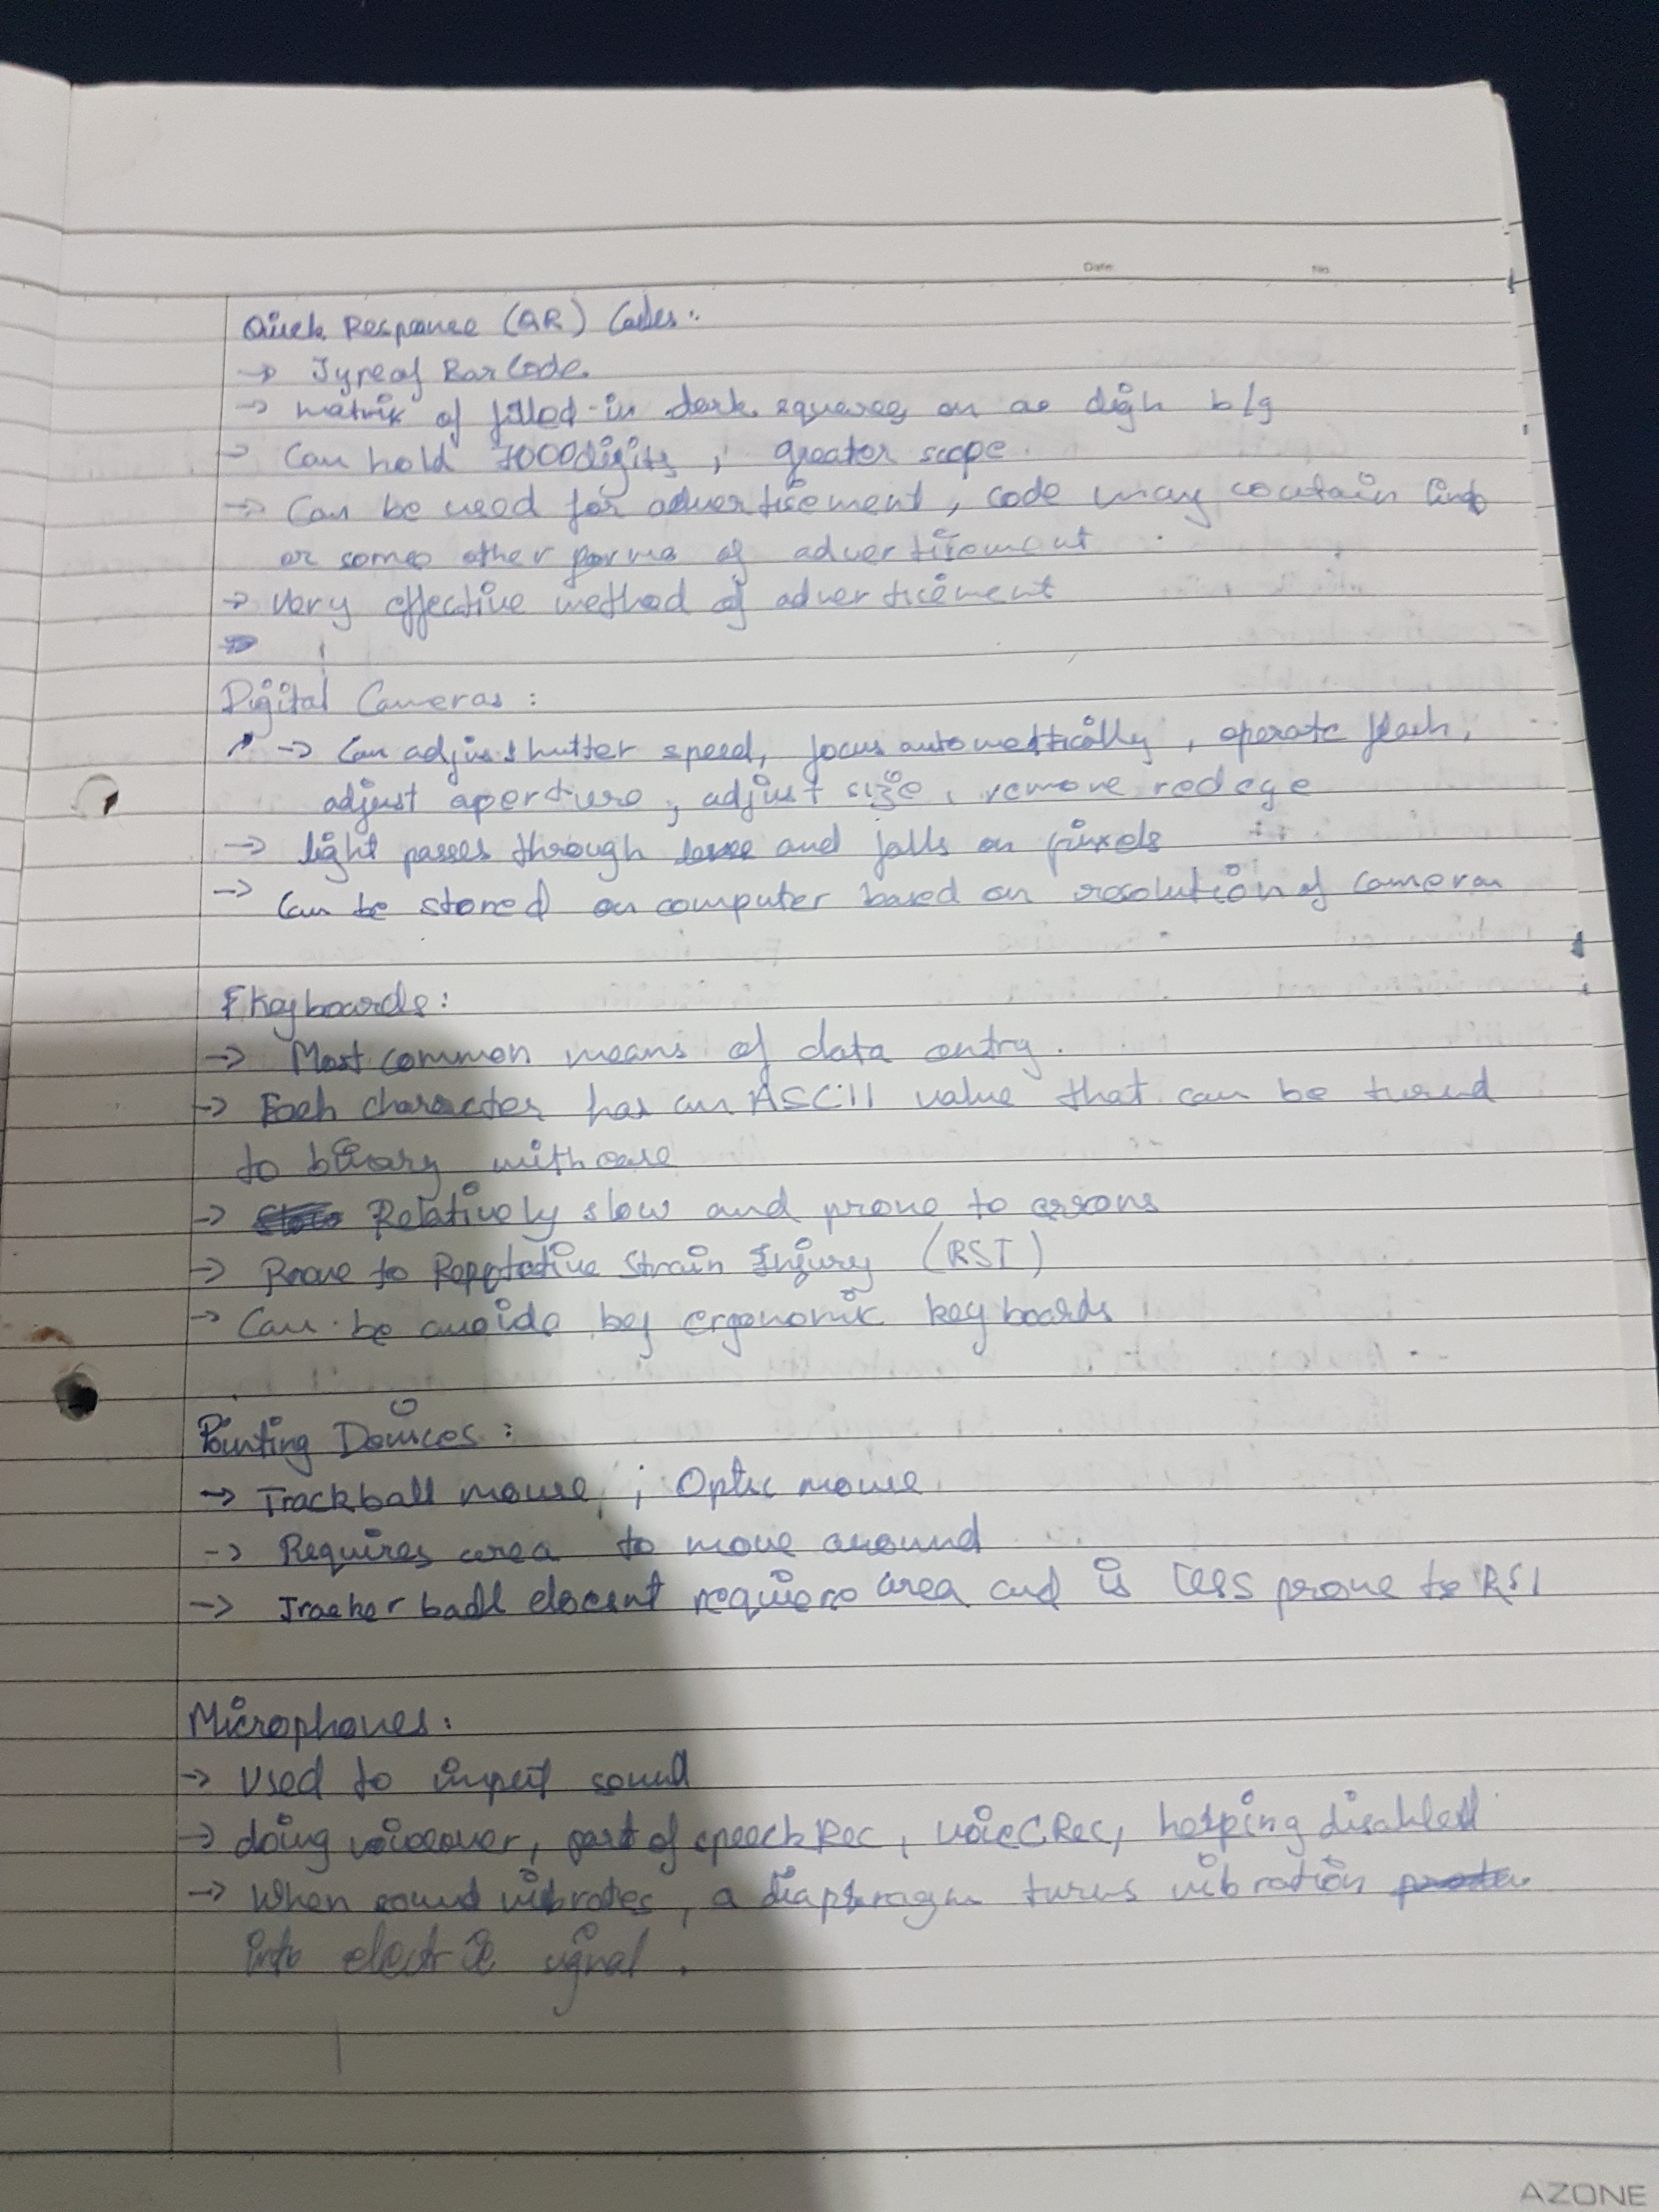 Date No.
Quick Response (QR) Codes:
→ Type of Bar Code.
→ matrix of filled-in dark squares on a b/g
→ Can hold 7000 digits, greater scope.
→ Can be used for advertisement, code may contain
or some other forms of advertisement
→ Very effective method of advertisement
Digital Cameras:
→ Can adjust shutter speed, focus automatically, operate flash,
adjust aperture, adjust size, remove red eye
→ light passes through and falls on pixels
→ Can be stored on computer based on resolution of camera
Keyboards:
→ Most common means of data entry.
→ Each character has an ASCII value that can be
to binary with ease
→ Relatively slow and prone to errors
→ Prone to Repetative Strain Injury (RSI)
→ Can be avoide by ergonomic keyboards
Pointing Devices:
→ Trackball mouse, ; Optic mouse
→ Requires area to move around
→ Tracker ball doesent require area and is less prone to RSI
Microphones:
→ Used to input sound
→ doing voiceover, part of speech Rec, voice Rec, helping disabled
→ When sound vibrates, a diaphragm turns vibration
into electric signal.
AZONE